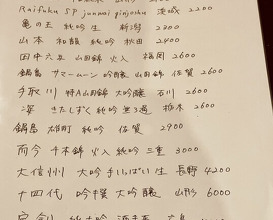 Raifuku SP junmai ginjoshu 茨城 2200
亀の王 純吟生 新潟 2300
山本 和韻 純吟 秋田 2400
田中六五 山田錦 火入 福岡 2600
鍋島 サマームーン 吟醸 山田錦 佐賀 2600
手取川 特A山田錦 大吟醸 石川 2600
きたしずく 純吟 無3過 栃木 2600
鍋島 雄町 純吟 佐賀 2900
而今 千本錦 火入 純吟 三重 3000
大信州 大吟 手いっぱい 生 長野 4200
十四代 吟撰 大吟醸 山形 6000